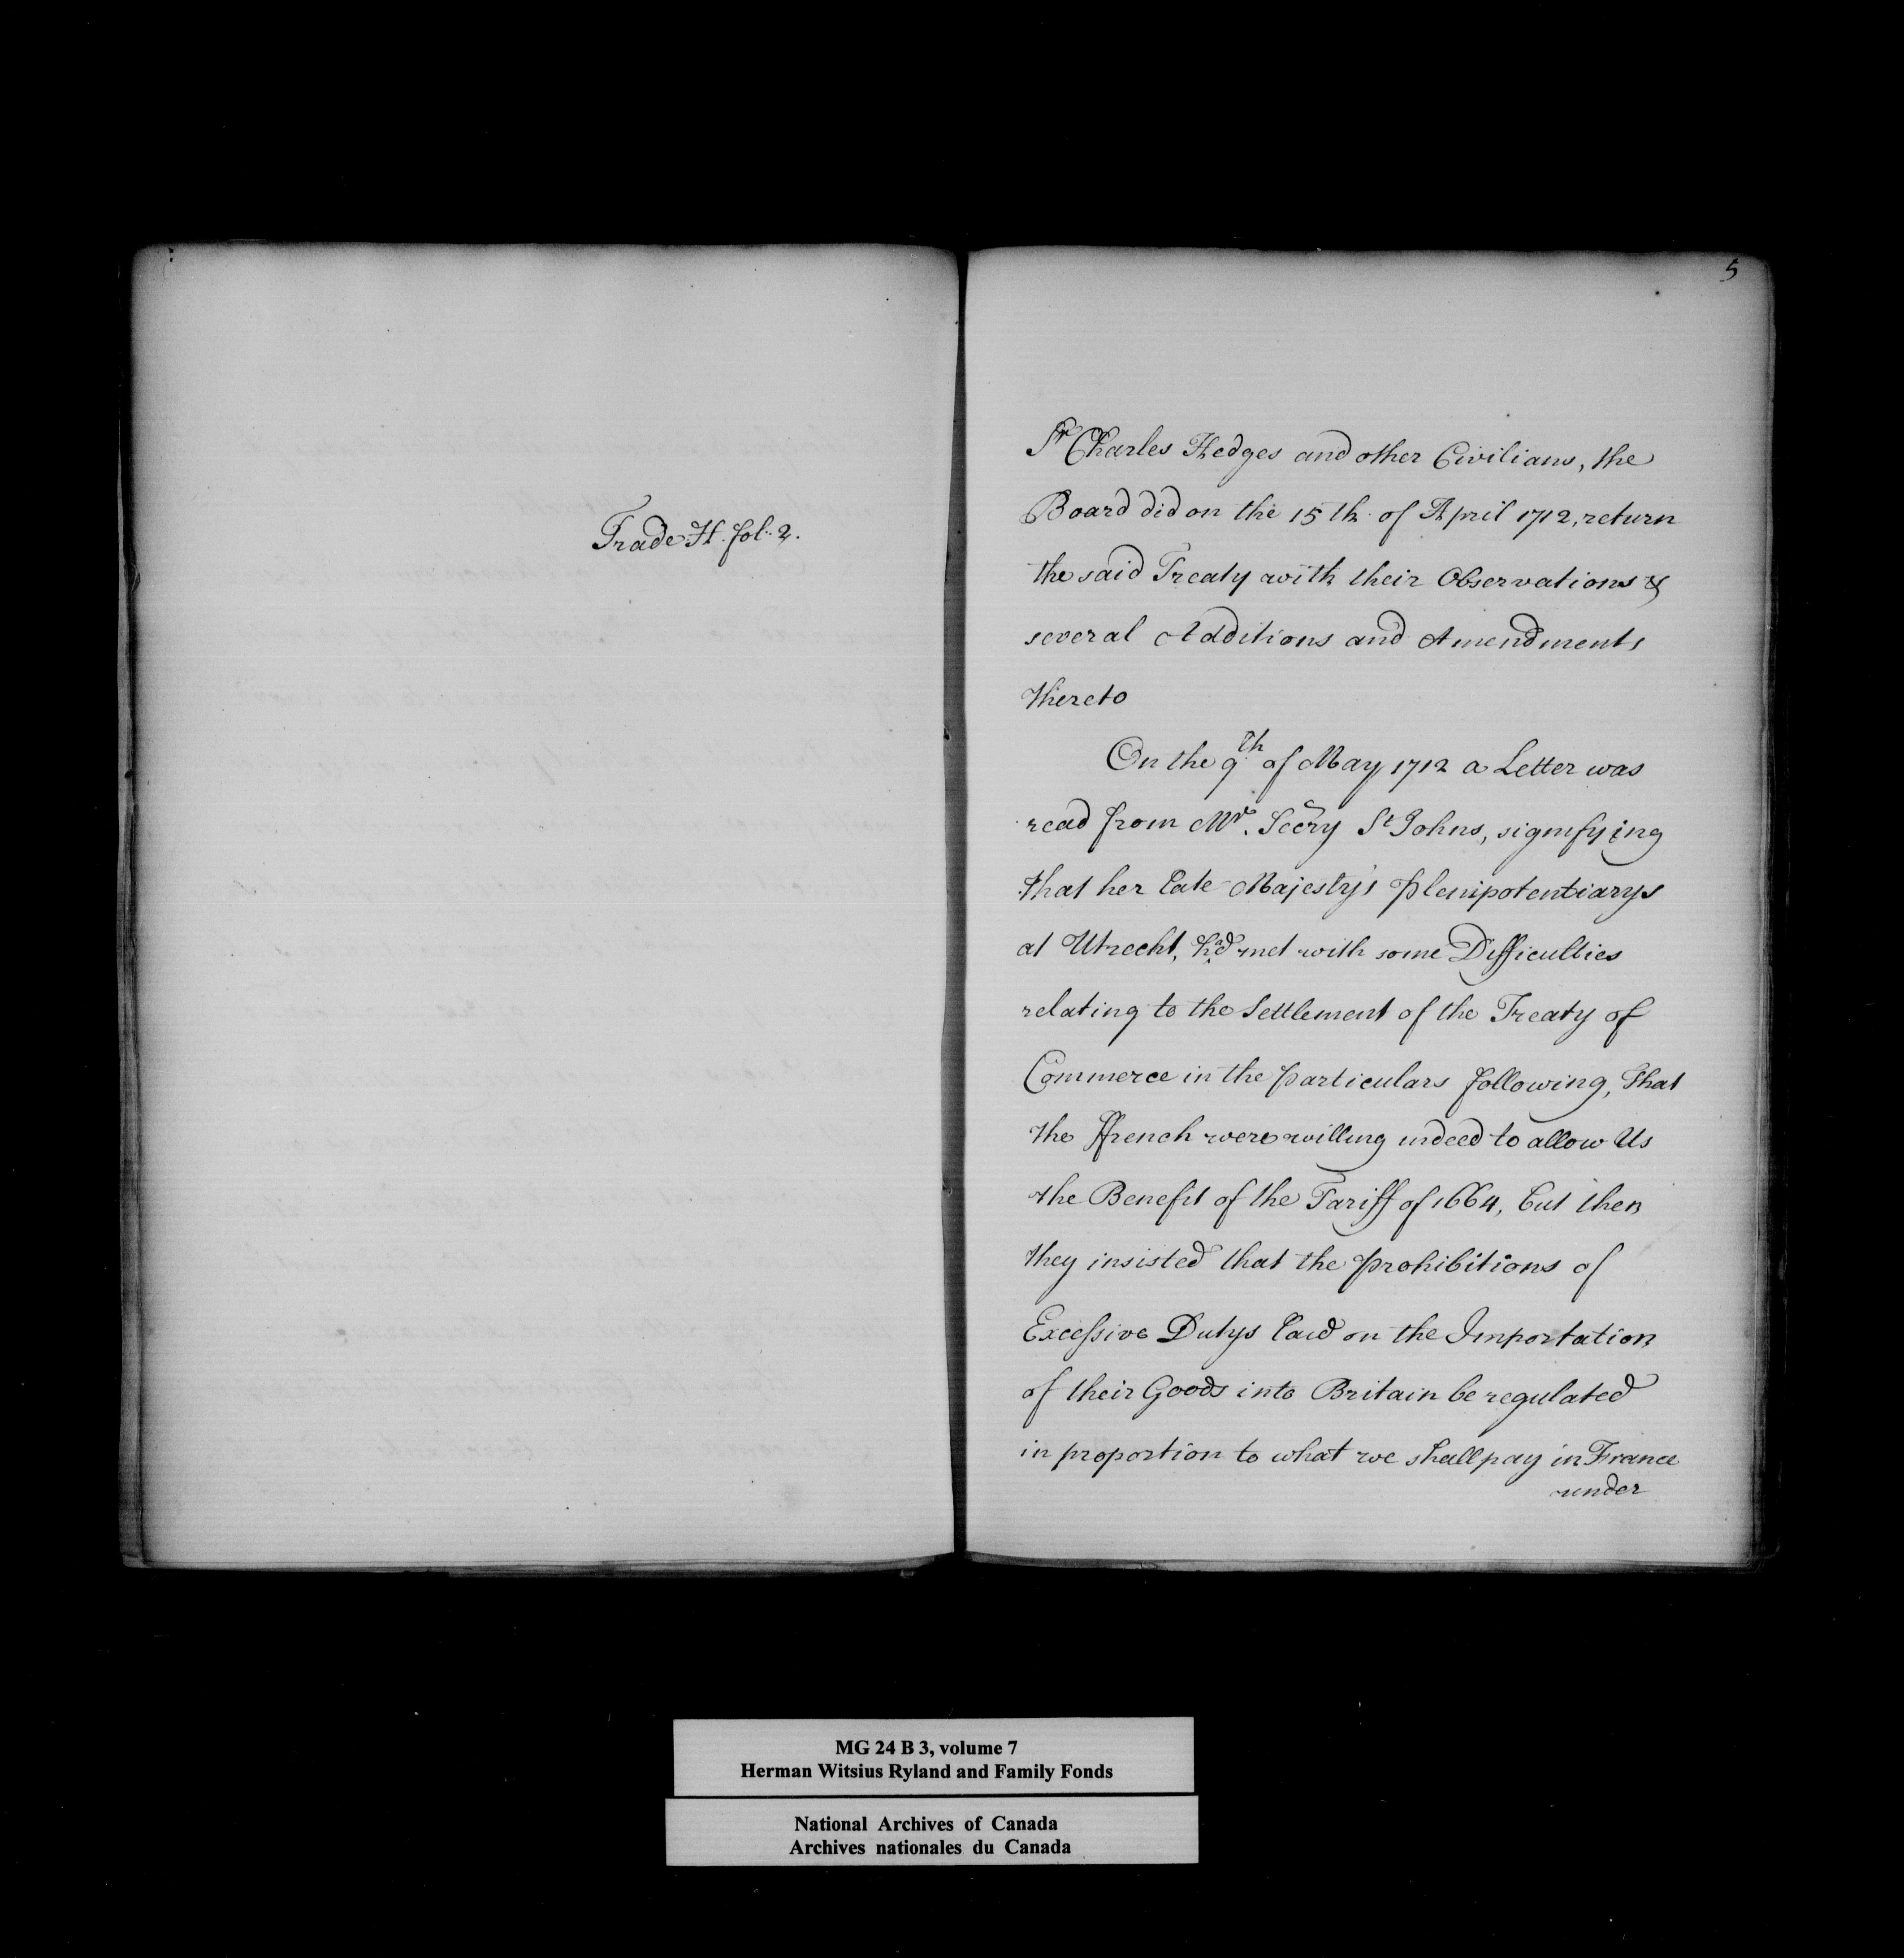 Trade H. fol. 2.
5
Sr Charles Hedges and other Civilians, the
Board did on the 15th. of April 1712, return
the said Treaty with their Observations &
several Additions and Amendments
thereto
On the 9th of May 1712 a Letter was
read from Mr. Secry St Johns, signifying
that her late Majesty's Plenipotentiarys
at Utrecht, had met with some Difficulties
relating to the Settlement of the Treaty of
Commerce in the particulars following, That
the ffrench were willing indeed to allow Us
the Benefit of the Tariff of 1664, but then
they insisted that the prohibitions of
Excessive Dutys laid on the Importation
of their Goods into Britain be regulated
in proportion to what we shall pay in France
under
MG 24 B 3, volume 7
Herman Witsius Ryland and Family Fonds
National Archives of Canada
Archives nationales du Canada